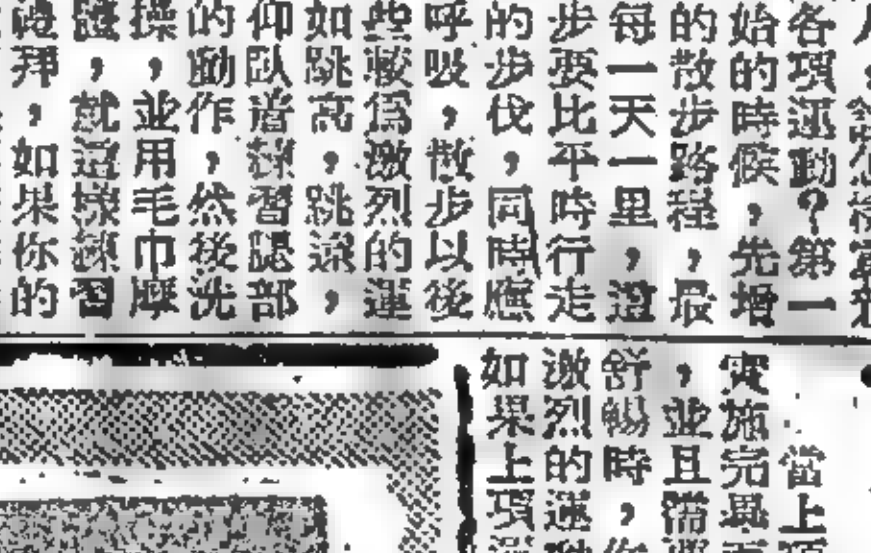 各項運動？第一
始的時候，先增
的散步路程，最
每一天一里，這
步要比平時行走
的步伐，同時應
呼吸，散步以後
些較為激烈的運
如跳高，跳遠，
仰臥道練習腿部
的動作，然後洗
操，並用毛巾摩
就這樣練習
拜，如果你的
當上
實施完畢
，並且需
舒暢時，
激烈的運動
如果上項